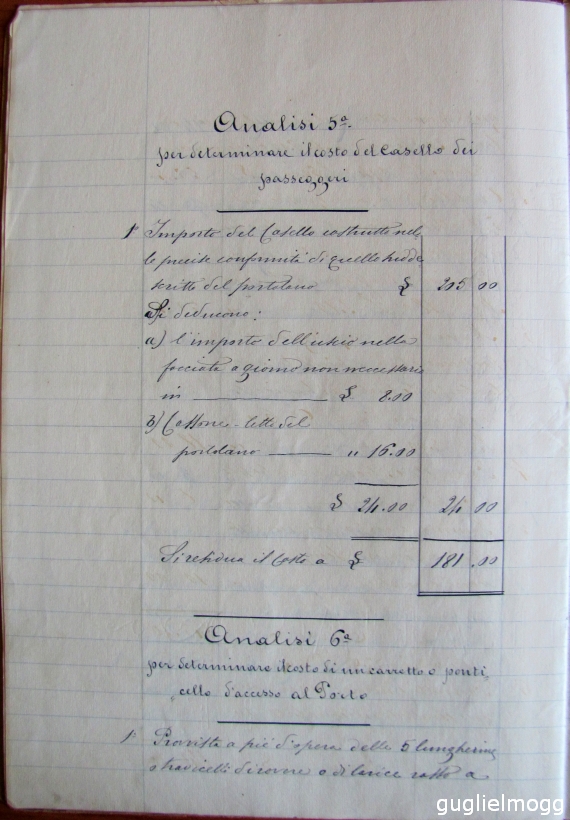 Analisi 5ª
per determinare il costo del Casello dei
passeggeri
1º Importo del Casello costrutto nel
le precise conformità di quello suddes
critto del portolano £ 205 00
Si deducono:
a) l'importo dell'uscio nella
facciata a giorno non necessario
in £ 8.00
b) Cassone-letto del
portolano " 16.00
£ 24.00 24 00
Si residua il Costo a £ 181.00
Analisi 6ª
per determinare il costo di un carretto o ponti
cello d'accesso al Porto
1º Provvista a piè d'opera delle 5 lungherine
o travicelli di rovere o di larice rosso a
guglielmogg